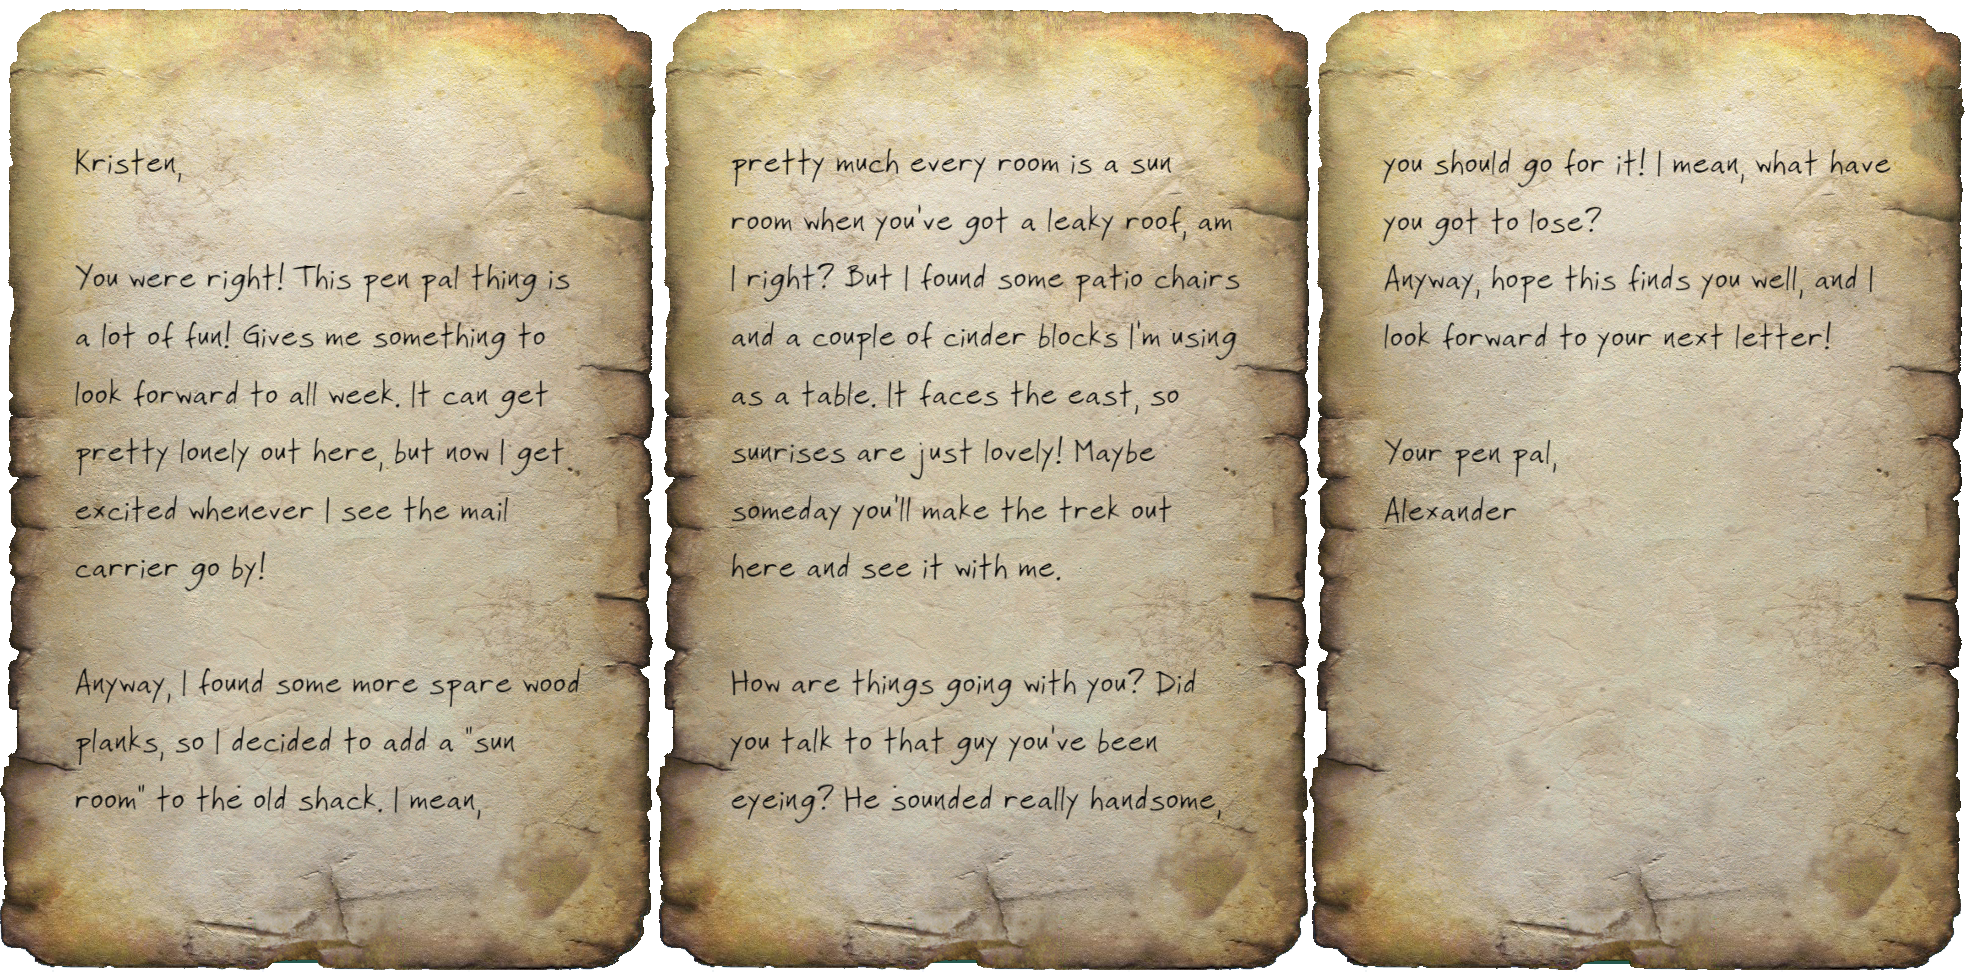 Kristen,
You were right! This pen pal thing is
a lot of fun! Gives me something to
look forward to all week. It can get
pretty lonely out here, but now I get
excited whenever I see the mail
carrier go by!
Anyway, I found some more spare wood
planks, so I decided to add a "sun
room" to the old shack. I mean,
pretty much every room is a sun
room when you've got a leaky roof, am
I right? But I found some patio chairs
and a couple of cinder blocks I'm using
as a table. It faces the east, so
sunrises are just lovely! Maybe
someday you'll make the trek out
here and see it with me.
How are things going with you? Did
you talk to that guy you've been
eyeing? He sounded really handsome,
you should go for it! I mean, what have
you got to lose?
Anyway, hope this finds you well, and I
look forward to your next letter!
Your pen pal,
Alexander